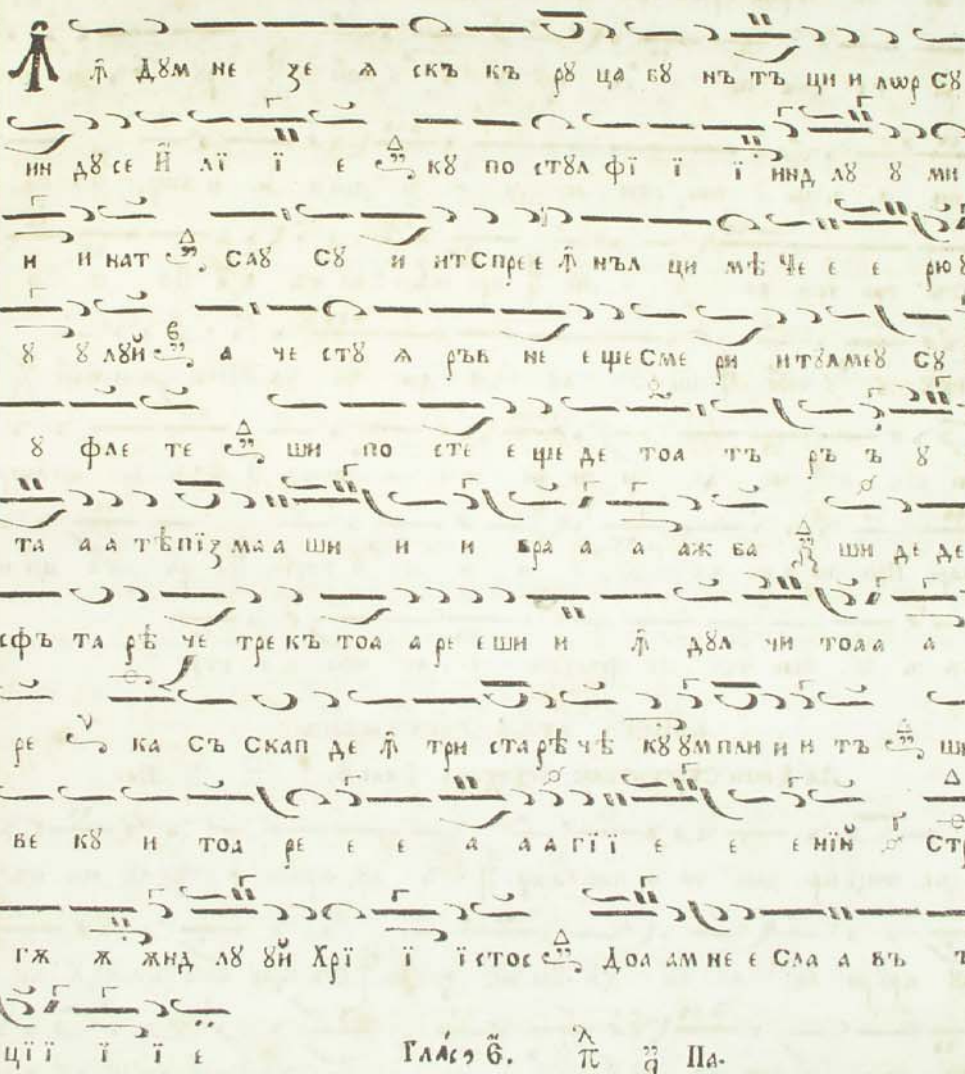 Ꙟ Дꙋм не зе ѧ скъ къ рꙋ ца бꙋ нъ тъ ци и лѡр Сꙋ
ин дꙋ се Й лї ї е кꙋ по стꙋл фї ї ї инд лꙋ ꙋ ми
и и нат Саꙋ Сꙋ и ит Спре е Ꙟ нъл ци мѣ Че е е рю ꙋ
ꙋ ꙋ лꙋй а че стꙋ ѧ ръв не е ще Сме ри и тꙋл меꙋ Сꙋ
ꙋ фле те ши по сте е ще де тоа тъ ръ ъ ꙋ
та а а тѣ пїз ма а ши и и вра а а аж ба ши де де
сфъ та рѣ че тре къ тоа а ре е ши и Ꙟ дꙋл чи тоа а а
ре ка Съ Скап де Ꙟ три ста рѣ чѣ кꙋ ꙋм пли и и тъ ши
ве кꙋ и тоа ре е е а а а гї ї е е е нїй Стр
гѫ ѫ ѫнд лꙋ ꙋй Хрї ї ї стос Доа ам не е Сла а въ т
цїї ї ї е Глас ѕ҃. π q Па.